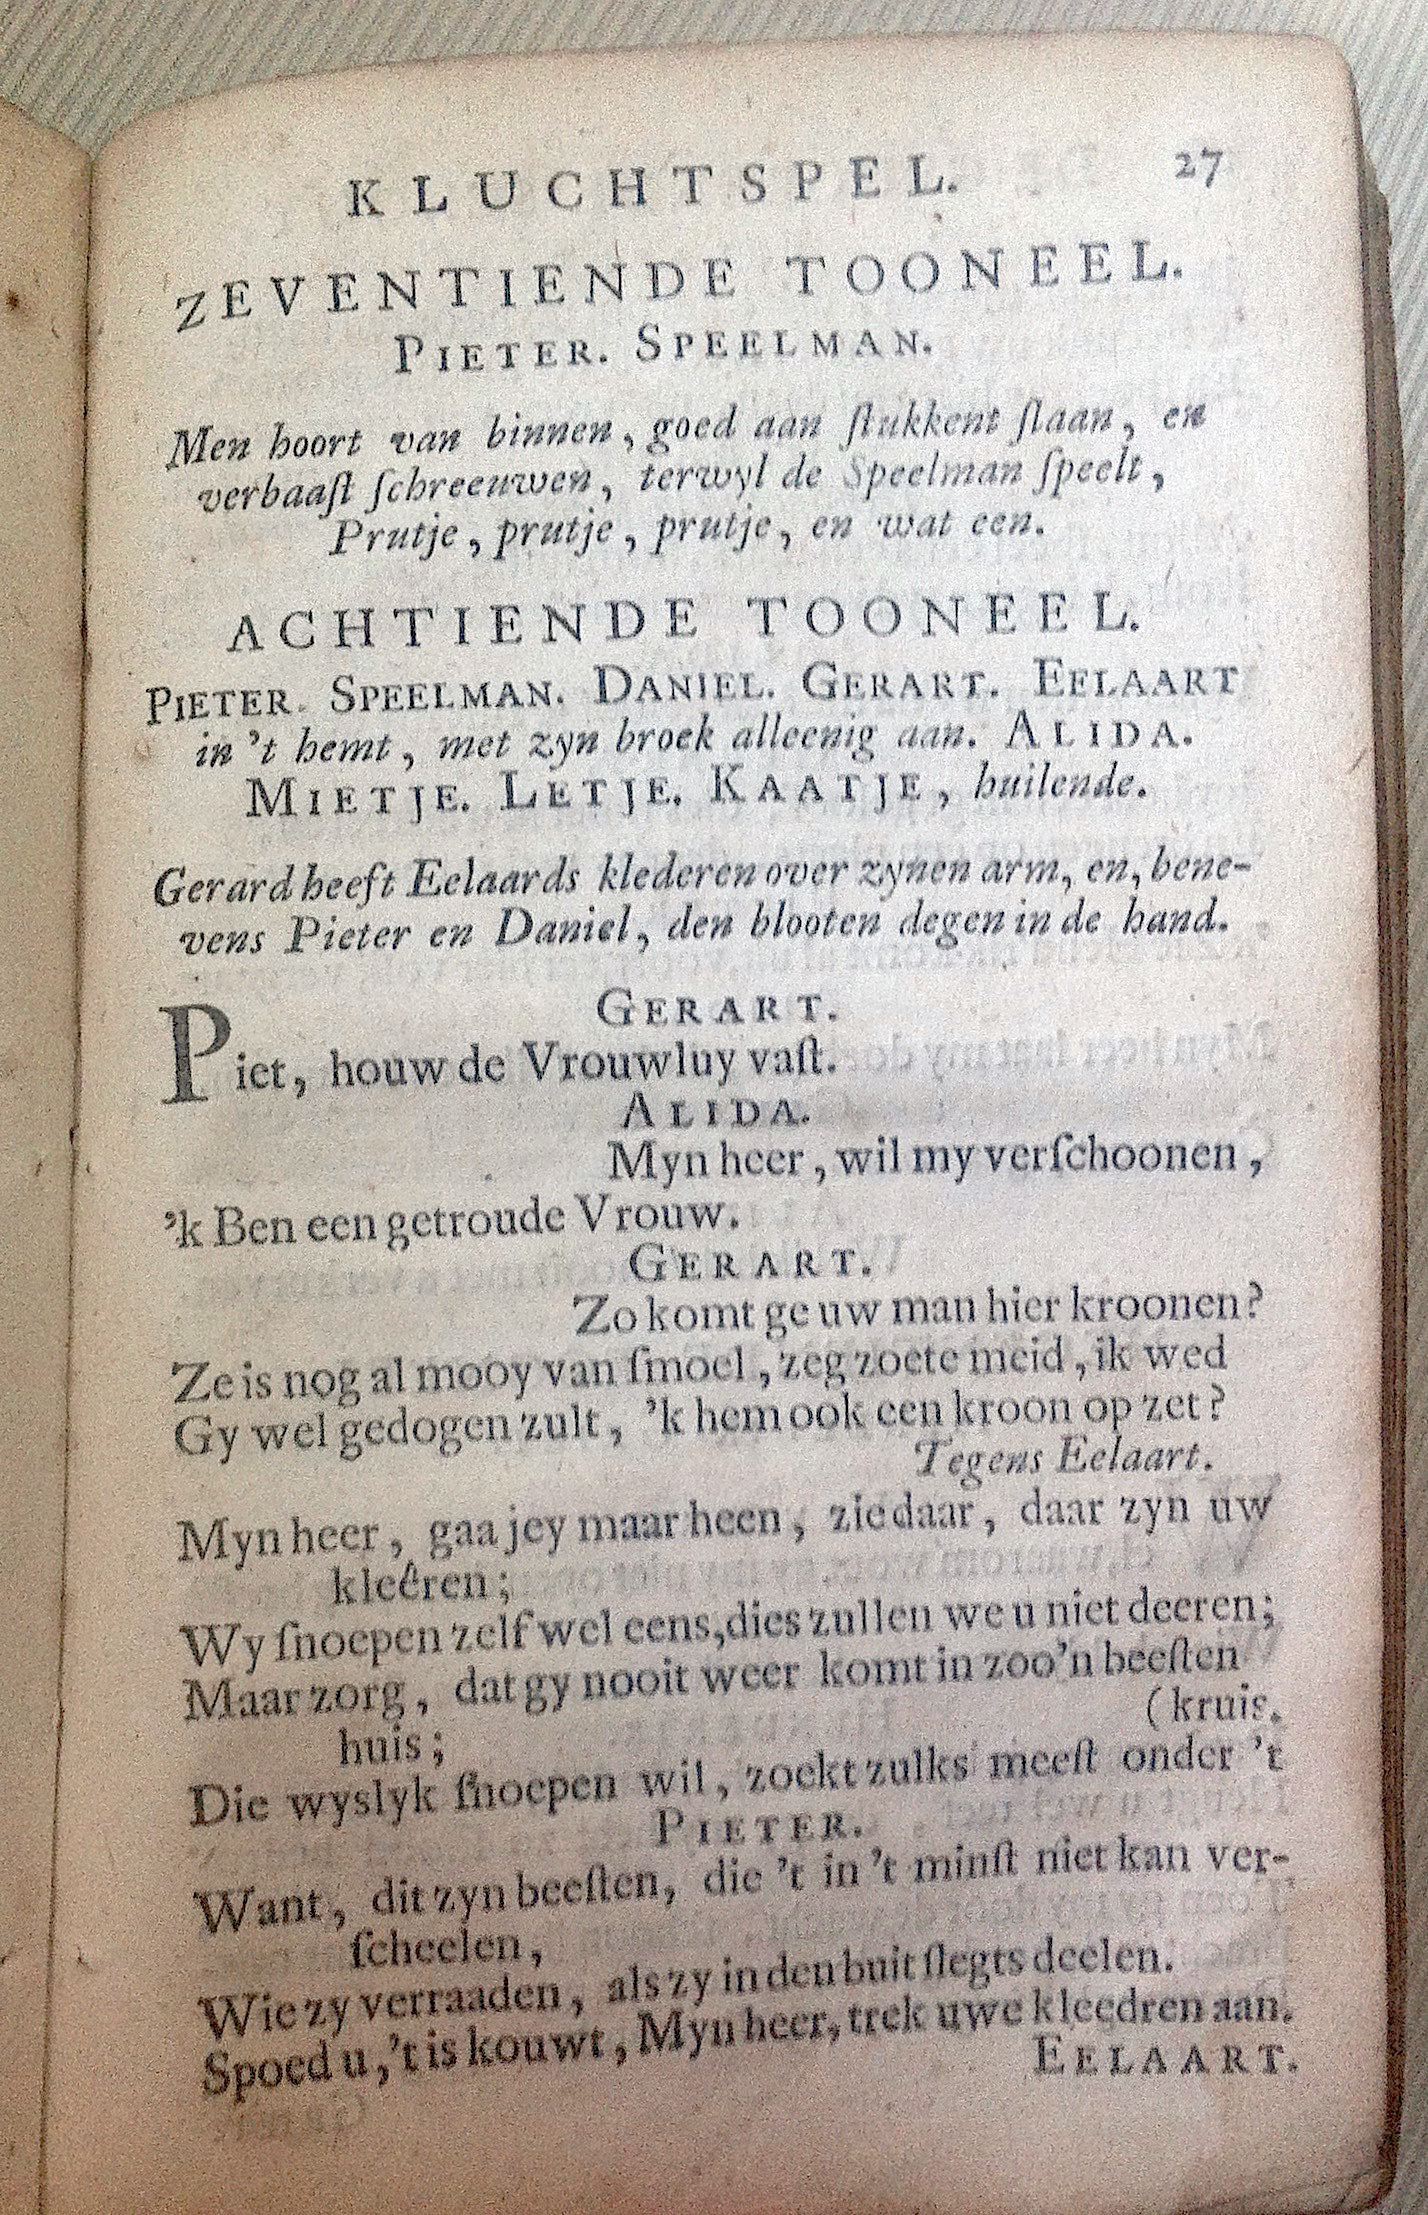 KLUCHTSPEL. 27
ZEVENTIENDE TOONEEL.
PIETER. SPEELMAN.
Men hoort van binnen, goed aan ſtukkent ſlaan, en
verbaaſt ſchreeuwen, terwyl de Speelman ſpeelt,
Prutje, prutje, prutje, en wat een.
ACHTIENDE TOONEEL.
PIETER. SPEELMAN. DANIEL. GERART. EELAART
in 't hemt, met zyn broek alleenig aan. ALIDA.
MIETJE. LETJE. KAATJE, huilende.
Gerard heeft Eelaards klederen over zynen arm, en, bene-
vens Pieter en Daniel, den blooten degen in de hand.
GERART.
Piet, houw de Vrouwluy vaſt.
ALIDA.
Myn heer, wil my verſchoonen,
'k Ben een getroude Vrouw.
GERART.
Zo komt ge uw man hier kroonen?
Ze is nog al mooy van ſmoel, zeg zoete meid, ik wed
Gy wel gedogen zult, 'k hem ook een kroon op zet?
Tegens Eelaart.
Myn heer, gaa jey maar heen, zie daar, daar zyn uw
kleêren;
Wy ſnoepen zelf wel eens, dies zullen we u niet deeren;
Maar zorg, dat gy nooit weer komt in zoo'n beeſten
huis; (kruis.
Die wyslyk ſnoepen wil, zoekt zulks meeſt onder 't
PIETER.
Want, dit zyn beeſten, die 't in 't minſt niet kan ver-
ſcheelen,
Wie zy verraaden, als zy in den buit ſlegts deelen.
Spoed u, 't is kouwt, Myn heer, trek uwe kleedren aan.
EELAART.